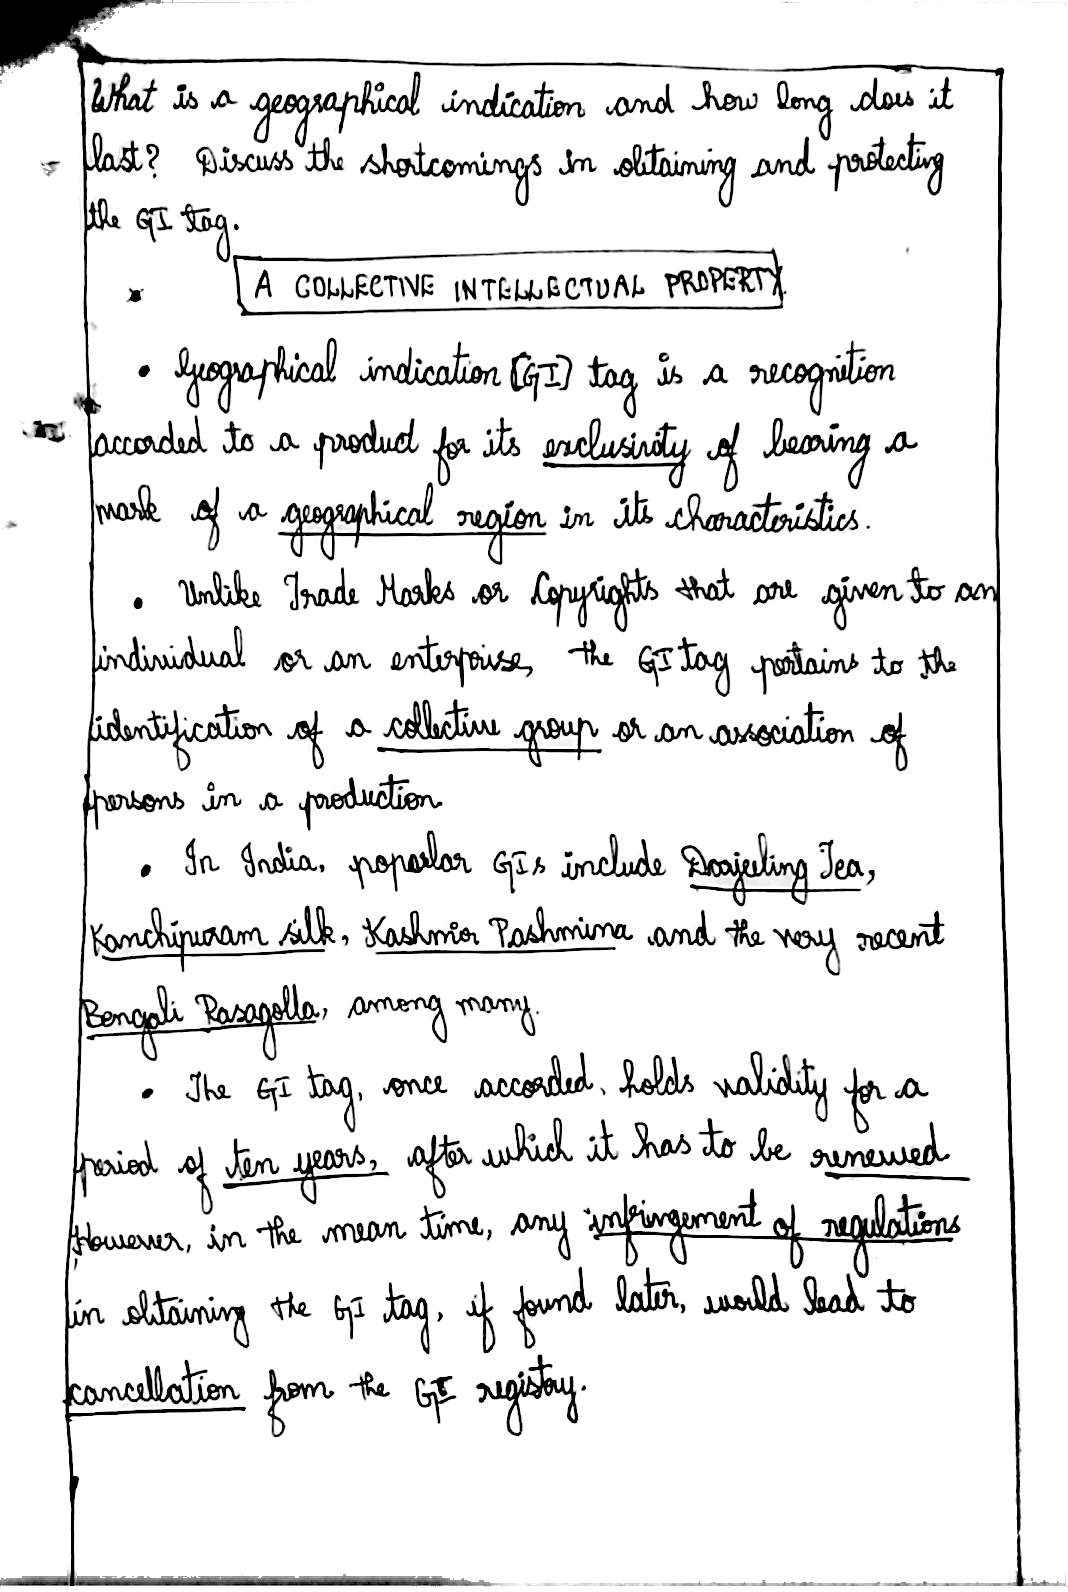 What is a geographical indication and how long does it
last? Discuss the shortcomings in obtaining and protecting
the GI tag.
A COLLECTIVE INTELLECTUAL PROPERTY.
• Geographical indication [GI] tag is a recognition
accorded to a product for its exclusivity of bearing a
mark of a geographical region in its characteristics.
• Unlike Trade Marks or Copyrights that are given to an
individual or an enterprise, the GI tag pertains to the
identification of a collective group or an association of
persons in a production.
• In India, popular GIs include Darjeeling Tea,
Kanchipuram silk, Kashmir Pashmina and the very recent
Bengali Rasagolla, among many.
• The GI tag, once accorded, holds validity for a
period of ten years, after which it has to be renewed.
However, in the mean time, any infringement of regulations
in obtaining the GI tag, if found later, would lead to
cancellation from the GI registry.